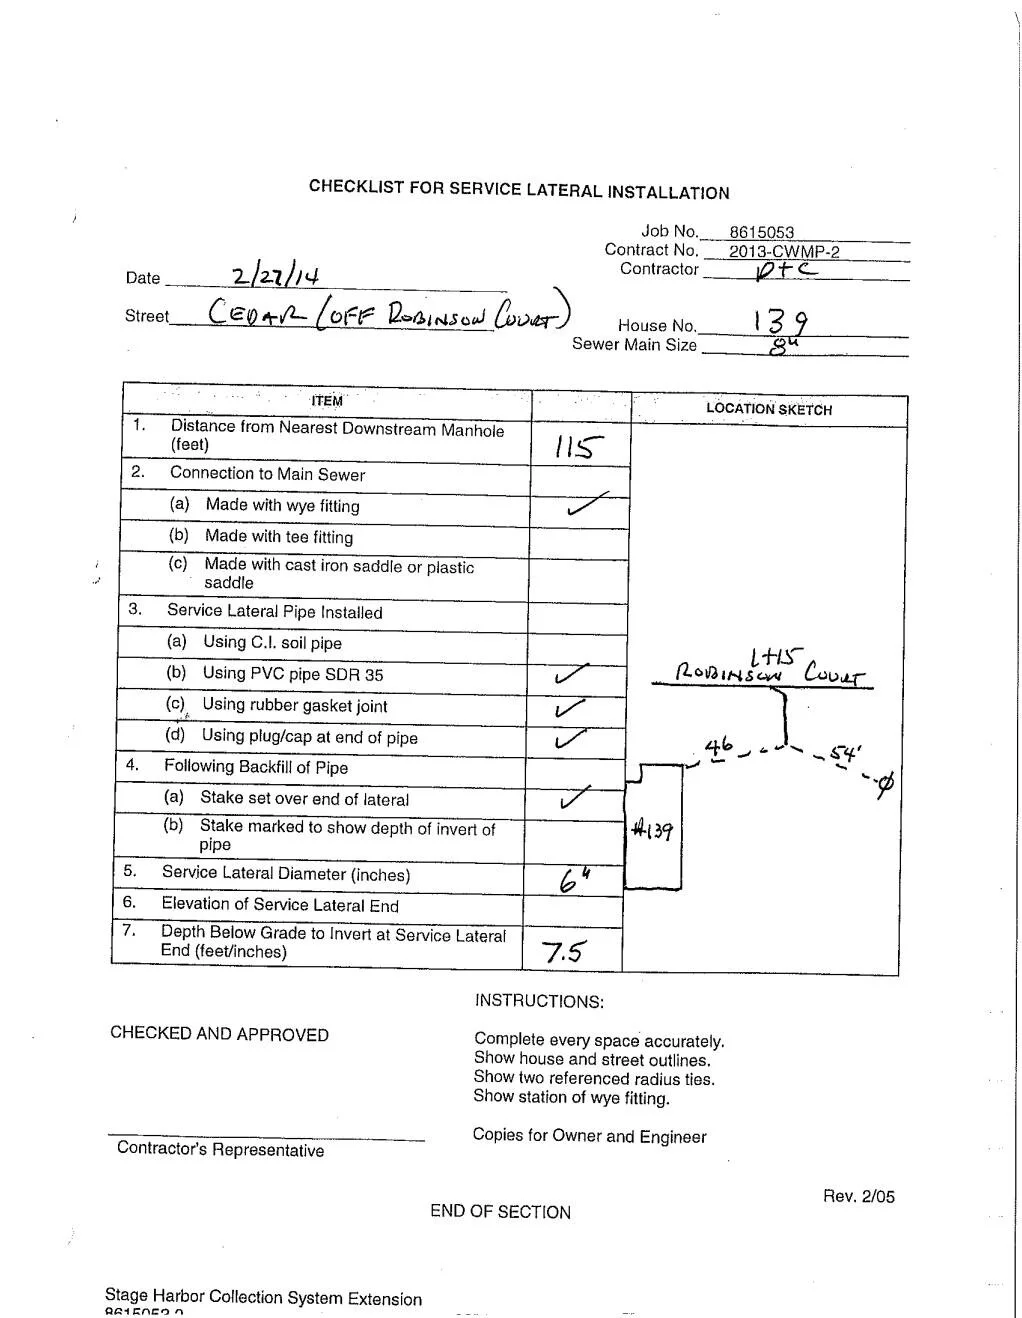 CHECKLIST FOR SERVICE LATERAL INSTALLATION
Job No. 8615053
Contract No. 2013-CWMP-2
Contractor D+C
Date 2/27/14
Street CEDAR (OFF ROBINSON COURT)
House No. 139
Sewer Main Size 8"
ITEM
LOCATION SKETCH
1. Distance from Nearest Downstream Manhole (feet) 115
2. Connection to Main Sewer
(a) Made with wye fitting ✓
(b) Made with tee fitting
(c) Made with cast iron saddle or plastic
saddle
3. Service Lateral Pipe Installed
(a) Using C.I. soil pipe
(b) Using PVC pipe SDR 35 ✓
(c) Using rubber gasket joint ✓
(d) Using plug/cap at end of pipe ✓
4. Following Backfill of Pipe
(a) Stake set over end of lateral ✓
(b) Stake marked to show depth of invert of
pipe
5. Service Lateral Diameter (inches) 6"
6. Elevation of Service Lateral End
7. Depth Below Grade to Invert at Service Lateral
End (feet/inches) 7.5
1+15
ROBINSON COURT
46
54'
#139
INSTRUCTIONS:
CHECKED AND APPROVED
Complete every space accurately.
Show house and street outlines.
Show two referenced radius ties.
Show station of wye fitting.
Contractor's Representative
Copies for Owner and Engineer
Rev. 2/05
END OF SECTION
Stage Harbor Collection System Extension